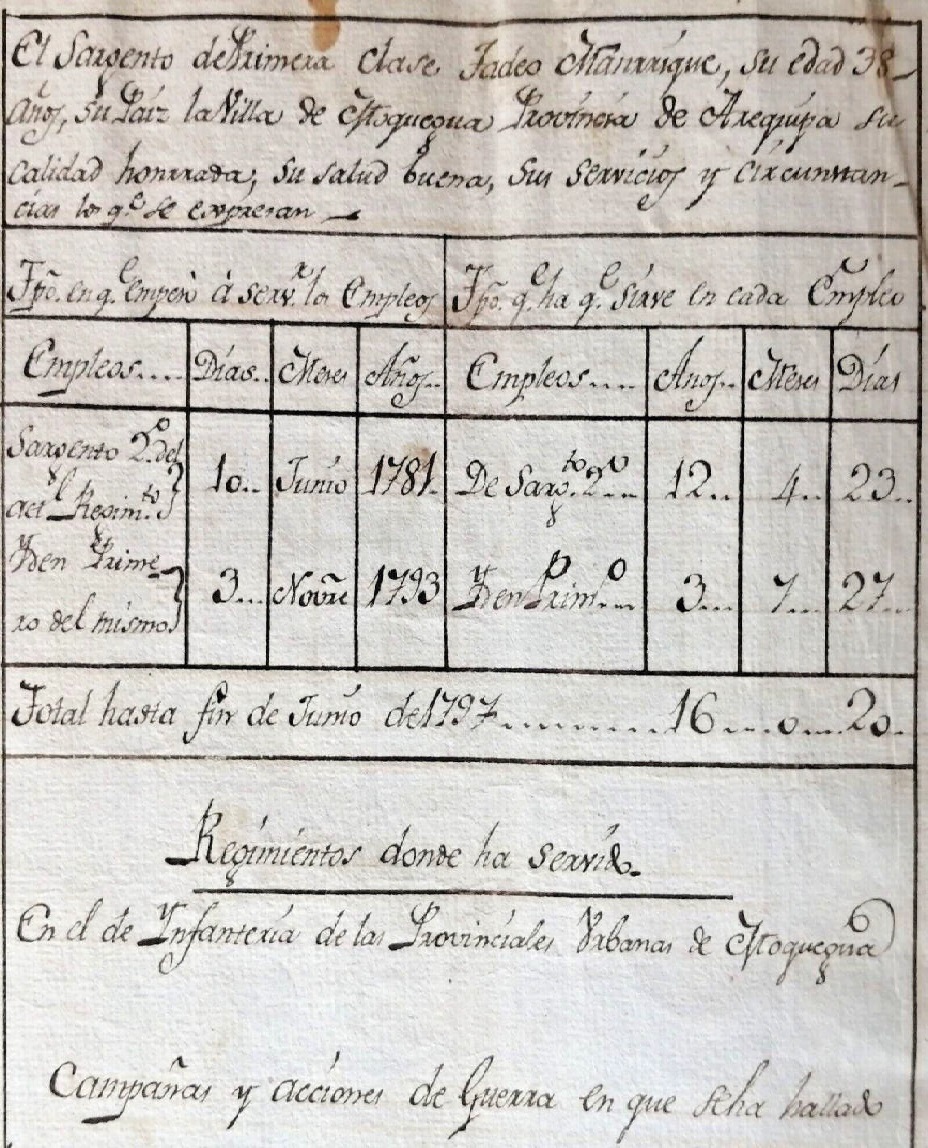 El Sargento de Primera clase Tadeo Manrrique, su edad 38
años, su Paiz la Villa de Moquegua Provincia de Arequipa su
calidad honrrada, su salud buena, sus servicios y circunstan-
cias los q.e se expresan
Tpõ. en q.e empezò á serv.r los Empleos
Tpõ. q.e ha q.e sirve en cada Empleo
Empleos.... Días.. Meses Años.. Empleos.... Años.. Meses Días
Sargento 2.o del
act.l Regim.to 10.. Junio 1781. De Sarg.to 2.o.. 12.. 4.. 23..
Yden Prime-
ro del mismo 3... Novre 1793 Yden Prim.o... 3... 7... 27...
Total hasta fin de Junio de 1797............ 16....0....20.
Regimientos donde ha servido.
En el de Ynfanteria de las Provinciales Urbanas de Moquegua
Campañas y acciones de Guerra en que se ha hallado